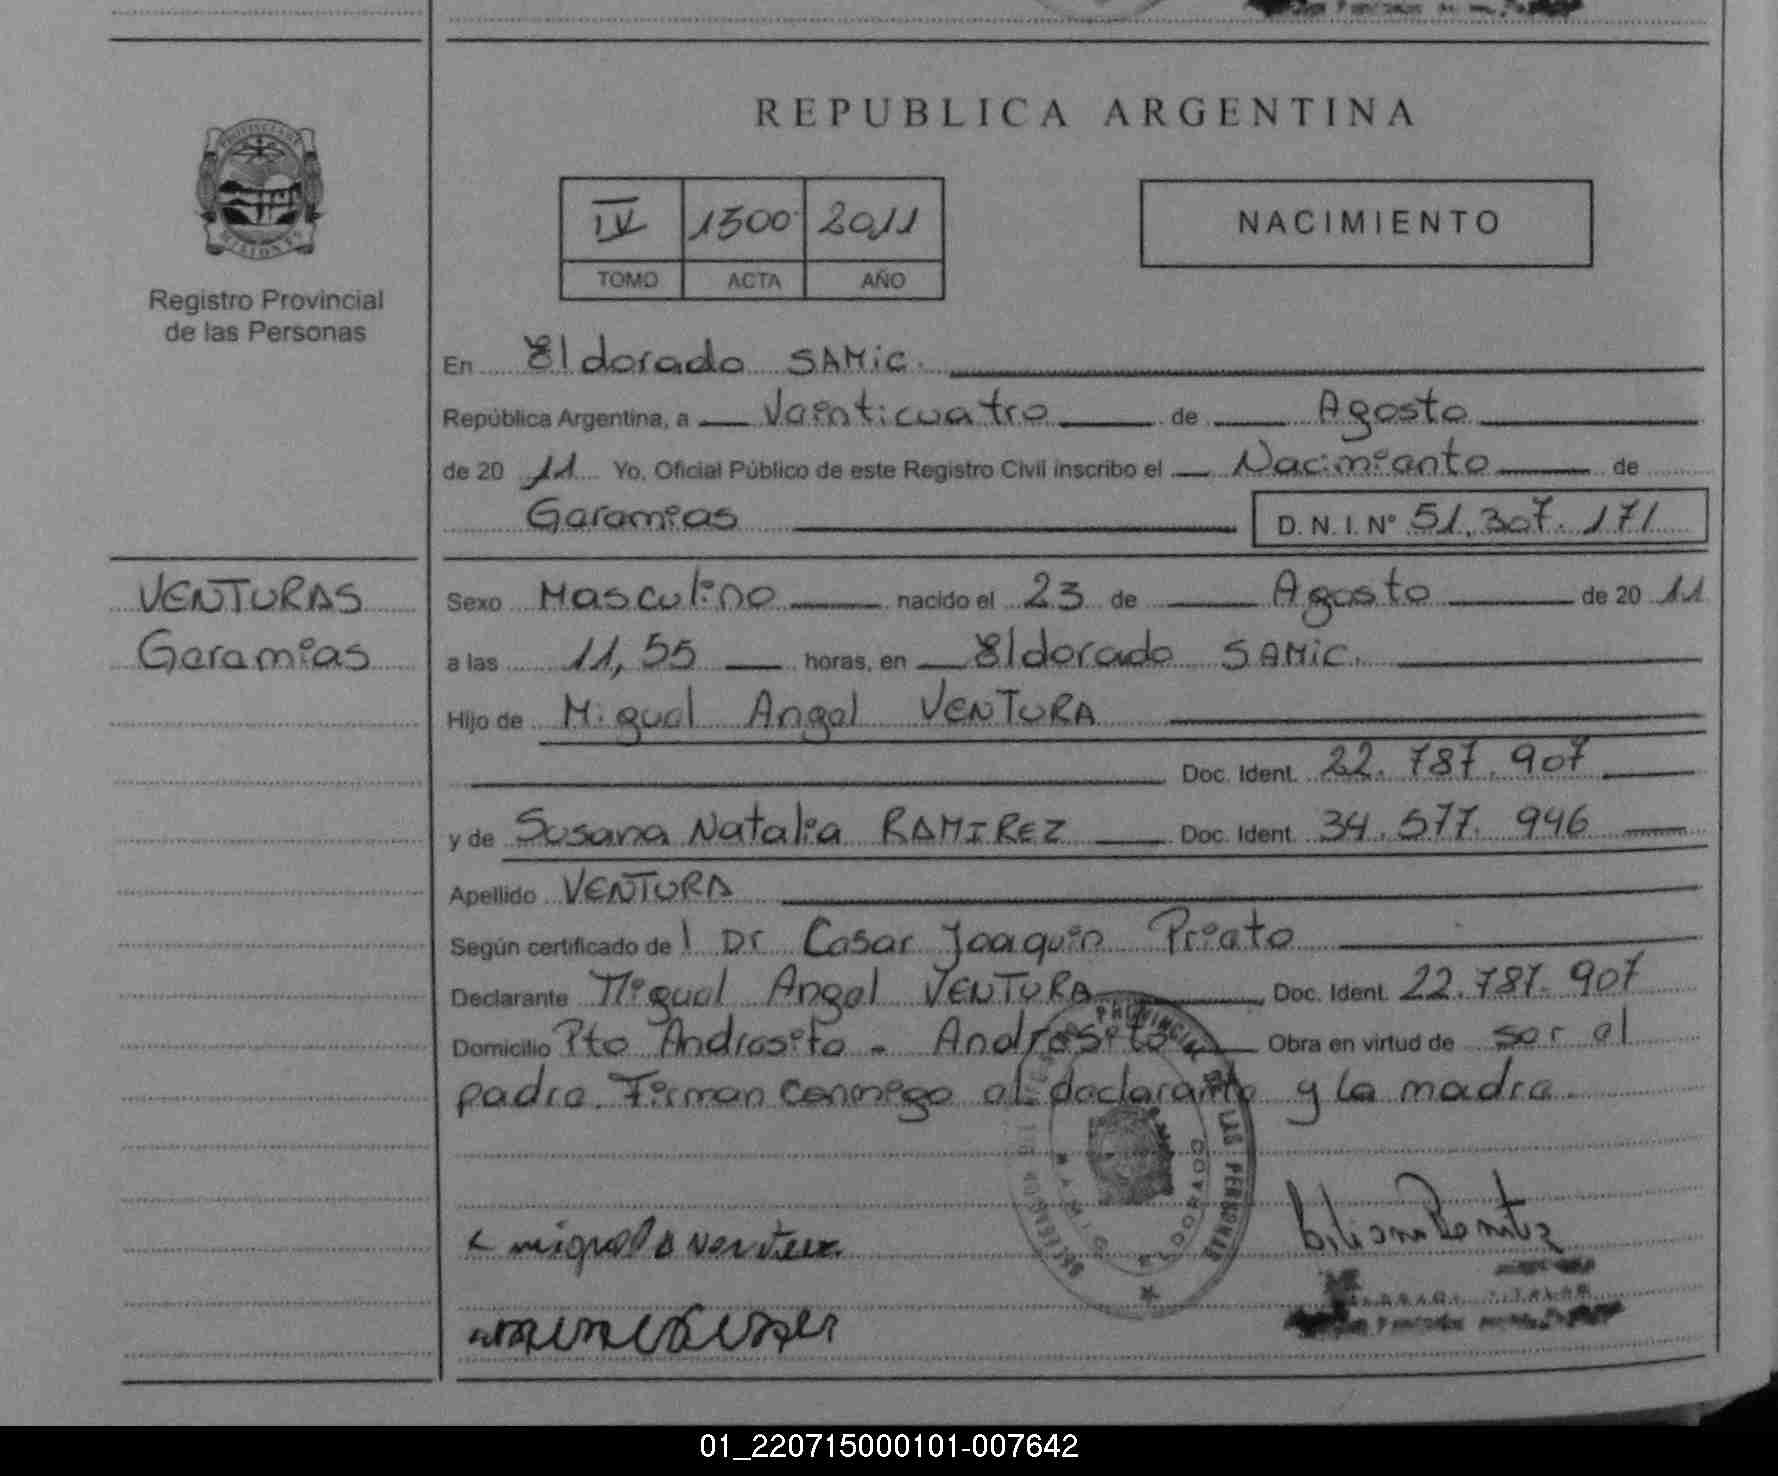 REPUBLICA ARGENTINA
PROVINCIA DE
MISIONES
Registro Provincial
de las Personas
IV 1300 2011
TOMO ACTA AÑO
NACIMIENTO
En Eldorado SAMic.
República Argentina, a Veinticuatro de Agosto
de 20 11 Yo, Oficial Público de este Registro Civil inscribo el Nacimiento de
Geremias D.N.I. Nº 51.307.171
VENTURAS
Geremias
Sexo Masculino nacido el 23 de Agosto de 20 11
a las 11,55 horas, en Eldorado SAMic.
Hijo de Miguel Angel VENTURA
Doc. Ident. 22.787.907
y de Susana Natalia RAMIREZ Doc. Ident. 34.577.946
Apellido VENTURA
Según certificado de l Dr Cesar Joaquin Prieto
Declarante Miguel Angel VENTURA Doc. Ident. 22.787.907
Domicilio Pto Andresito - Andresito Obra en virtud de ser el
padre. Firman conmigo el declarante y la madre.
PROVINCIAL DE LAS PERSONAS
ELDORADO
SAMIC
miguel A ventura
TITULAR
01_220715000101-007642